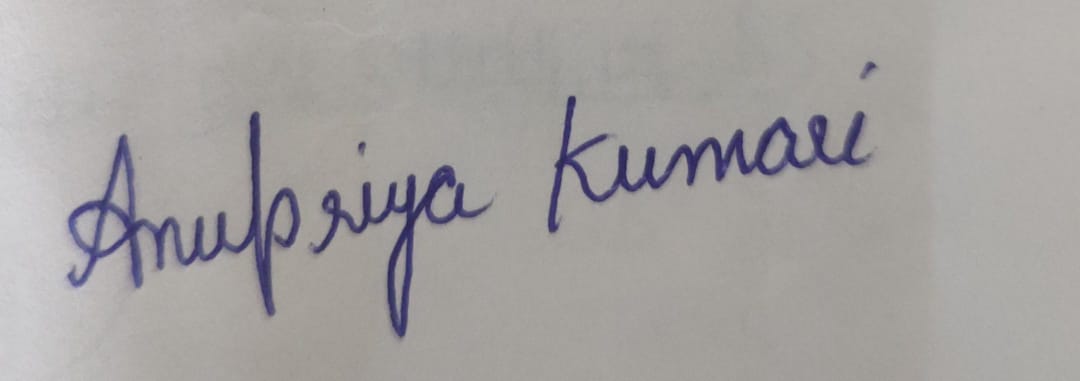 Anupriya Kumari